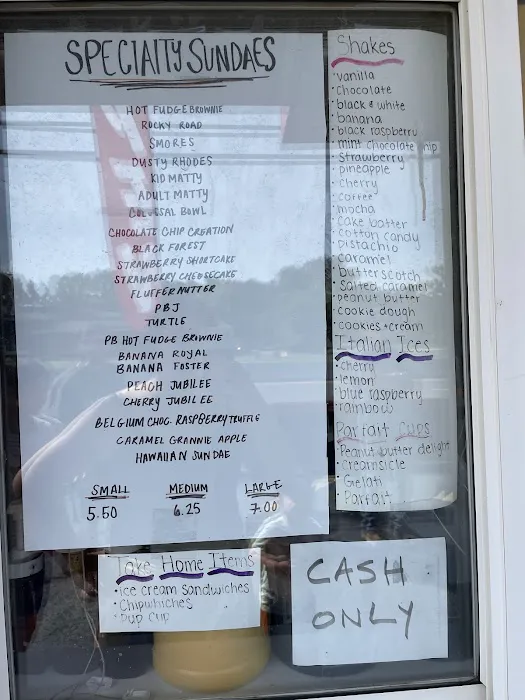 SPECIALTY SUNDAES
HOT FUDGE BROWNIE
ROCKY ROAD
SMORES
DUSTY RHODES
KID MATTY
ADULT MATTY
COLOSAL BOWL
CHOCOLATE CHIP CREATION
BLACK FOREST
STRAWBERRY SHORTCAKE
STRAWBERRY CHEESECAKE
FLUFFERNUTTER
PBJ
TURTLE
PB HOT FUDGE BROWNIE
BANANA ROYAL
BANANA FOSTER
PEACH JUBILEE
CHERRY JUBILEE
BELGIUM CHOC. RASPBERRY TRUFFLE
CARAMEL GRANNIE APPLE
HAWAIIAN SUNDAE
SMALL MEDIUM LARGE
5.50 6.25 7.00
Shakes
·vanilla
·chocolate
·black & white
·banana
·black raspberry
·mint chocolate chip
·strawberry
·pineapple
·cherry
·coffee
·mocha
·cake batter
·cotton candy
·pistachio
·caramel
·butterscotch
·salted caramel
·peanut butter
·cookie dough
·cookies + cream
Italian Ices
·cherry
·lemon
·blue raspberry
·rainbow
Parfait Cups
·Peanut butter delight
·Creamsicle
·Gelati
·Parfait
Take Home Items
·ice cream sandwiches
·Chipwhiches
·Pup cup
CASH
ONLY